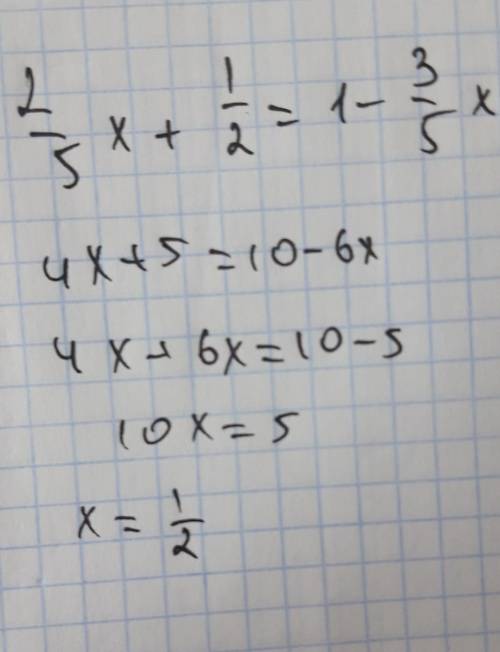 2/5 x + 1/2 = 1 - 3/5 x
4x+5 = 10-6x
4x+6x=10-5
10x=5
x = 1/2